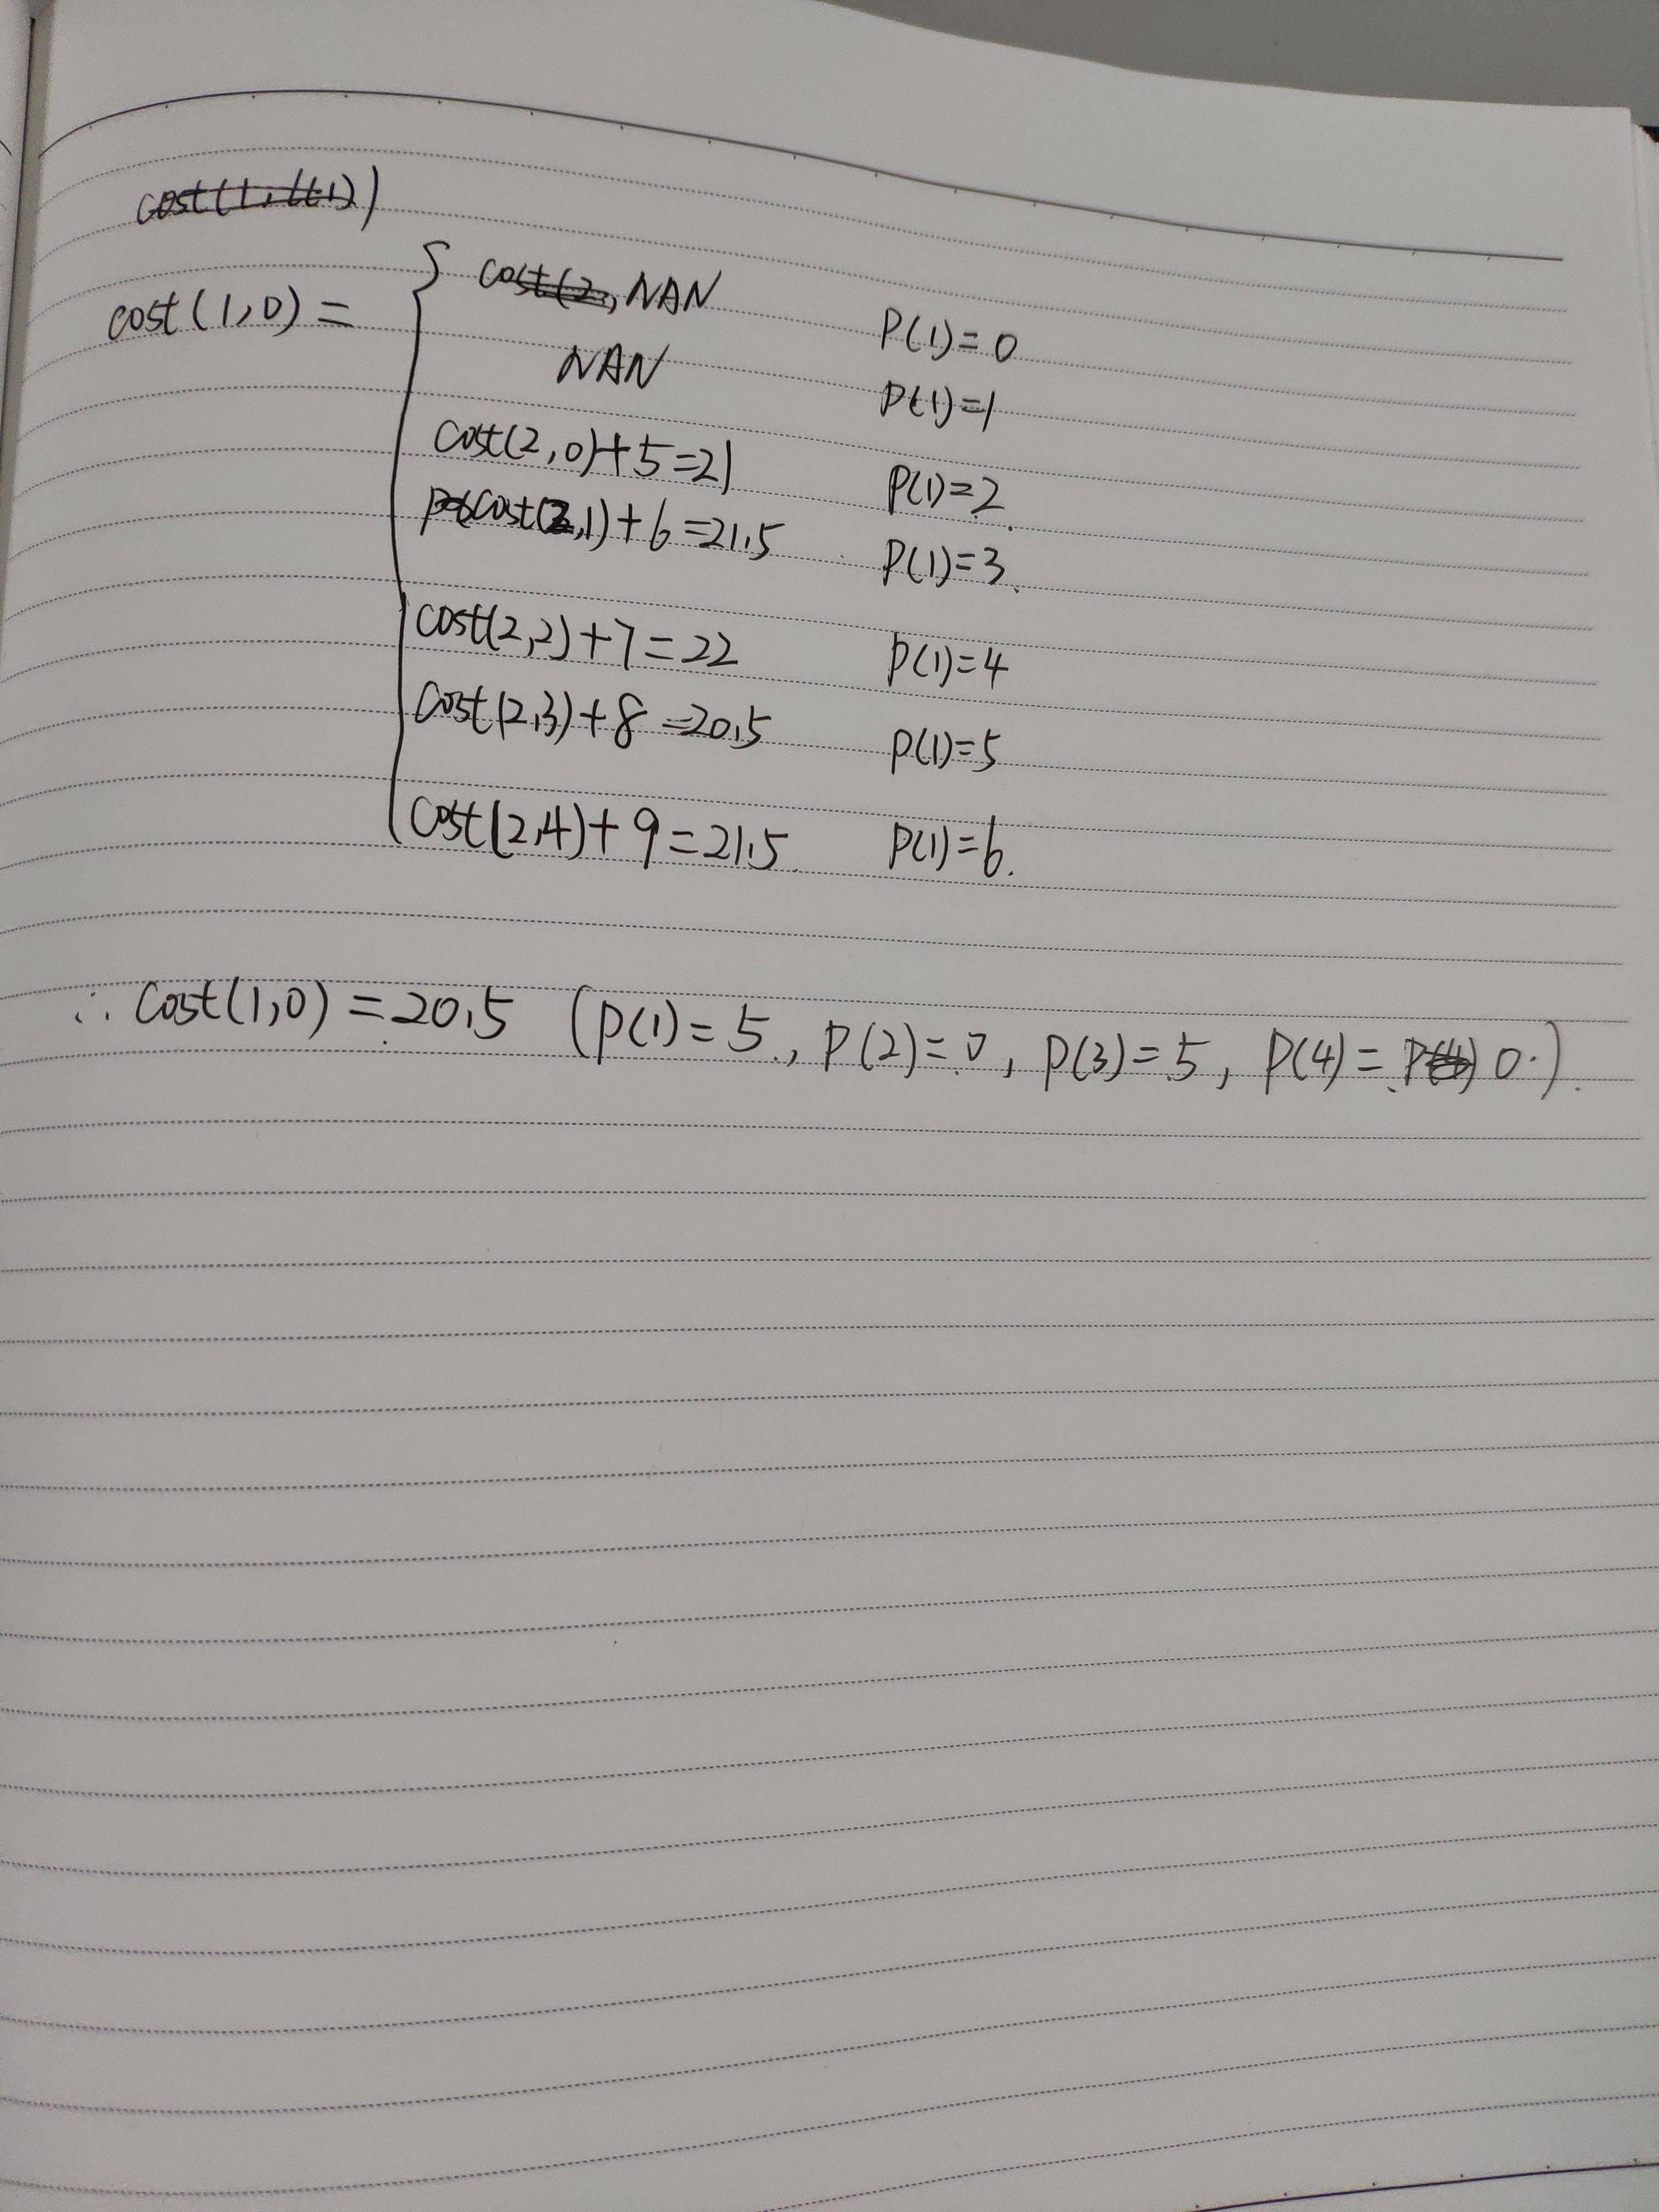 cost(1,
cost(1,0) = { NAN P(1)=0
NAN P(1)=1
cost(2,0)+5=21 P(1)=2.
cost(2,1)+6=21.5 P(1)=3.
cost(2,2)+7=22 P(1)=4
cost(2,3)+8=20.5 P(1)=5
cost(2,4)+9=21.5. P(1)=6.
∴ cost(1,0)=20.5 (P(1)=5., P(2)=0, P(3)=5, P(4)= 0.).